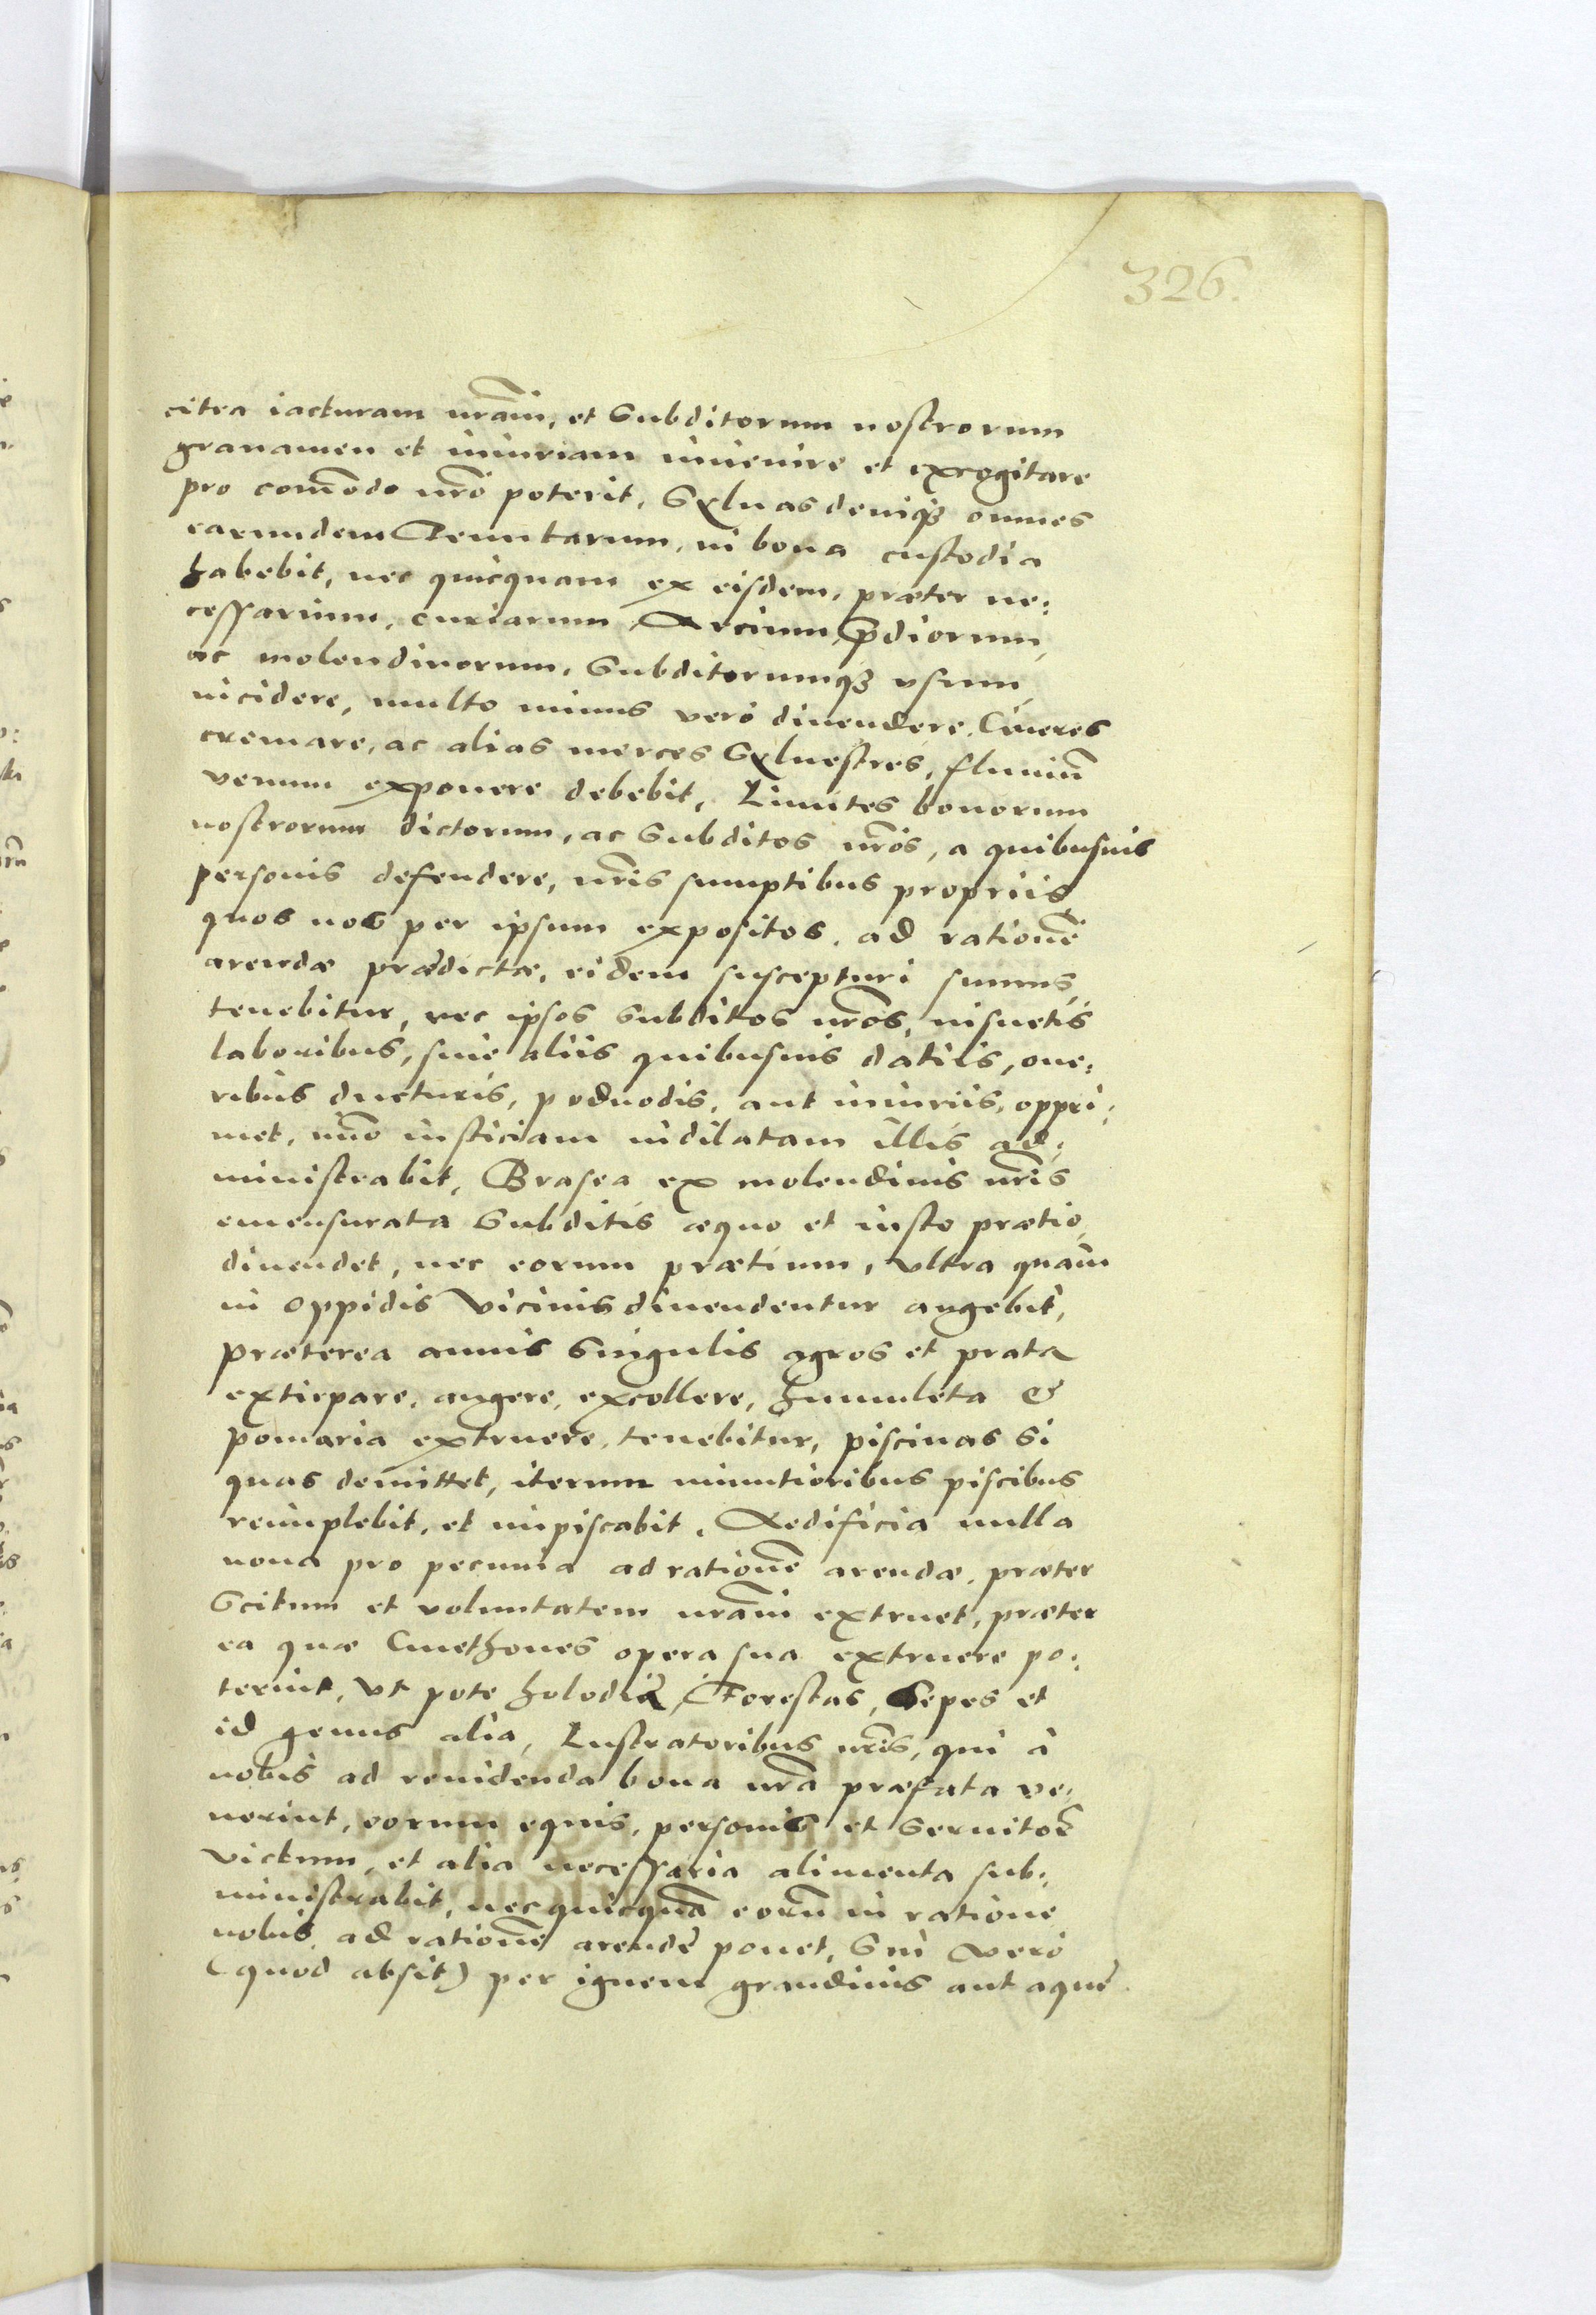 326.
citra iacturam nr̃am, et Subditorum nostrorum
grauamen et iniuriam inuenire et excogitare
pro com̃odo nr̃o poterit, Syluas deniq₃ omnes
earundem Tenutarum, in bona custodia
habebit, nec quicquam ex eisdem, præter ne:
cessarium, curiarum, Arcium, p̃diorum,
ac molendinorum, Subditorumq₃ vsum,
incidere, multo minus verò diuendere, Cineres
cremare, ac alias merces Syluestres, fluuiũ
venum exponere debebit, Limites bonorum
nostrorum dictorum, ac Subditos nr̃os, a quibusuis
personis defendere, nr̃is sumptibus propriis,
quos nos per ipsum expositos, ad rationẽ
arendæ prædictæ, eidem suscepturi sumus,
tenebitur, nec ipsos Subditos nr̃os, insuetis
laboribus, siue aliis quibusuis datiis, one:
ribus ducturis, poduodis, aut iniuriis, oppri:
met, imo iusticiam indilatam illis ad:
ministrabit, Brasea ex molendinis nr̃is
emensurata Subditis æquo et iusto prætio,
diuendet, nec eorum prætium, vltra quàm
in oppidis vicinis diuendentur augebit,
præterea annis singulis agros et prata
extirpare, augere, excollere, humuleta &
pomaria extruere, tenebitur, piscinas si
quas demittet, iterum minutioribus piscibus
reimplebit, et impiscabit, Aedificia nulla
noua pro pecunia ad rationẽ arendæ, præter
Scitum et voluntatem nr̃am extruet, præter
ea quæ Cmethones opera sua extruere po:
terint, vt pote holodia, Forestas, Sepes et
id genus alia, Lustratoribus nr̃is, qui à
nobis ad reuidenda bona nr̃a præfata ve:
nerint, eorum equis, personis et Seruitorẽ
victum, et alia necessaria alimenta sub:
ministrabit, nec quicquã eorũ in ratione
nobis, ad rationẽ arendę ponet, Sin verò
(quod absit) per ignem grandinis aut aquę